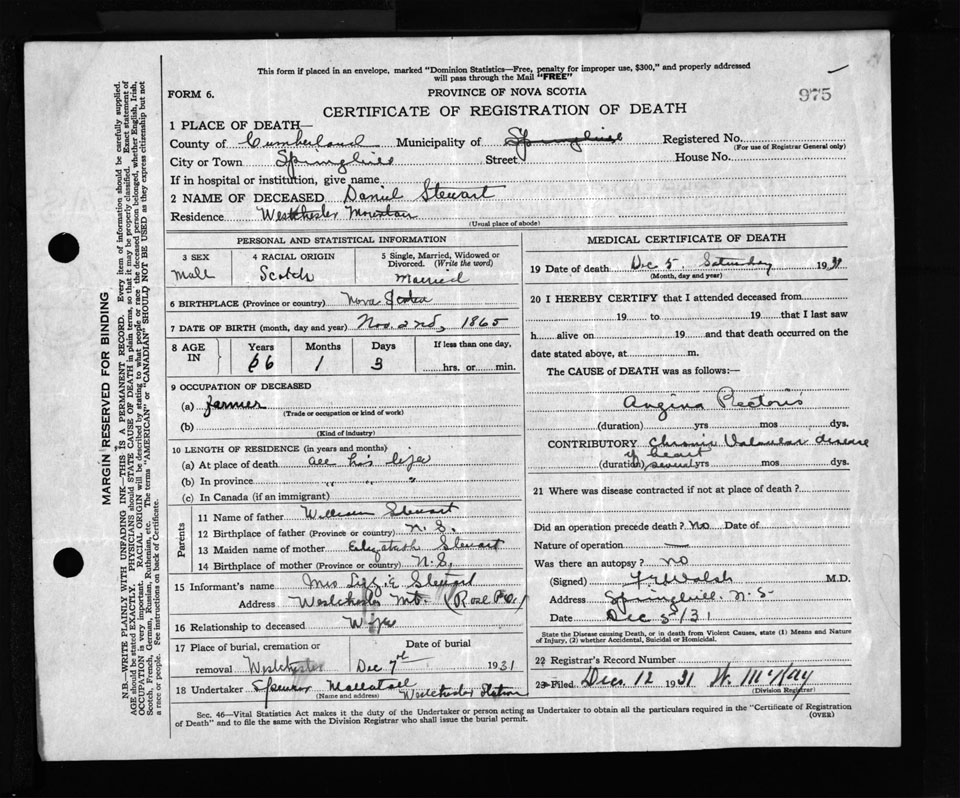 This form if placed in an envelope, marked "Dominion Statistics—Free, penalty for improper use, $300," and properly addressed
will pass through the Mail "FREE"
FORM 6.
PROVINCE OF NOVA SCOTIA
975
CERTIFICATE OF REGISTRATION OF DEATH
1 PLACE OF DEATH—
County of Cumberland Municipality of Springhill Registered No.
(For use of Registrar General only)
City or Town Springhill Street House No.
If in hospital or institution, give name
2 NAME OF DECEASED Daniel Stewart
Residence Westchester Mountain
(Usual place of abode)
PERSONAL AND STATISTICAL INFORMATION
3 SEX 4 RACIAL ORIGIN 5 Single, Married, Widowed or Divorced. (Write the word)
Male Scotch Married
6 BIRTHPLACE (Province or country) Nova Scotia
7 DATE OF BIRTH (month, day and year) Nov. 2nd, 1865
8 AGE IN Years Months Days If less than one day,
66 1 3 hrs. or min.
9 OCCUPATION OF DECEASED
(a) farmer
(Trade or occupation or kind of work)
(b)
(Kind of industry)
10 LENGTH OF RESIDENCE (in years and months)
(a) At place of death all his life
(b) In province " " "
(c) In Canada (if an immigrant)
Parents
11 Name of father William Stewart
12 Birthplace of father (Province or country) N.S.
13 Maiden name of mother Elizabeth Stewart
14 Birthplace of mother (Province or country) N.S.
15 Informant's name Mrs Lizzie Stewart
Address Westchester Mt. (Rose P.O.)
16 Relationship to deceased Wife
17 Place of burial, cremation or Date of burial
removal Westchester Dec 7th 1931
18 Undertaker Spencer Westchester Station
(Name and address)
MEDICAL CERTIFICATE OF DEATH
19 Date of death Dec 5. Saturday 1931
(Month, day and year)
20 I HEREBY CERTIFY that I attended deceased from
19 to 19 that I last saw
h alive on 19 and that death occurred on the
date stated above, at m.
The CAUSE of DEATH was as follows:—
Angina Pectoris
(duration) yrs mos dys.
CONTRIBUTORY Chronic Valvular disease
of heart
(duration) several yrs mos dys.
21 Where was disease contracted if not at place of death?
Did an operation precede death? No Date of
Nature of operation —
Was there an autopsy? no
(Signed) Walsh M.D.
Address Springhill. N.S
Date Dec 5/31
State the Disease causing Death, or in death from Violent Causes, state (1) Means and Nature
of Injury, (2) whether Accidental, Suicidal or Homicidal.
22 Registrar's Record Number
23 Filed Dec. 12 1931 W. McKay
(Division Registrar)
Sec. 46—Vital Statistics Act makes it the duty of the Undertaker or person acting as Undertaker to obtain all the particulars required in the "Certificate of Registration
of Death" and to file the same with the Division Registrar who shall issue the burial permit.
(OVER)
MARGIN RESERVED FOR BINDING
N.B.—WRITE PLAINLY WITH UNFADING INK—THIS IS A PERMANENT RECORD. Every item of information should be carefully supplied.
AGE should be stated EXACTLY. PHYSICIANS should STATE CAUSE OF DEATH in plain terms, so that it may be properly classified. Exact statement of
OCCUPATION is very important. RACIAL ORIGIN will be described by stating to what people or race the deceased person belonged, whether English, Irish,
Scotch, French, German, Russian, Ruthenian, etc. The terms "AMERICAN" or "CANADIAN" SHOULD NOT BE USED as they express citizenship but not
a race or people. See instructions on back of Certificate.